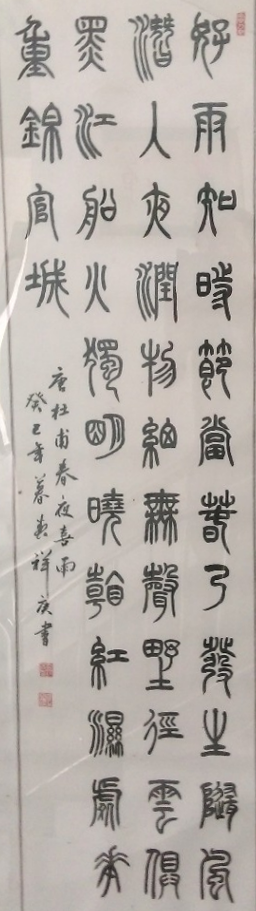 好雨知時節當春乃發生隨風
潛入夜潤物細無聲野徑雲俱
黑江船火獨明曉看紅濕處花
重錦官城
唐杜甫春夜喜雨
癸巳年暮春祥書